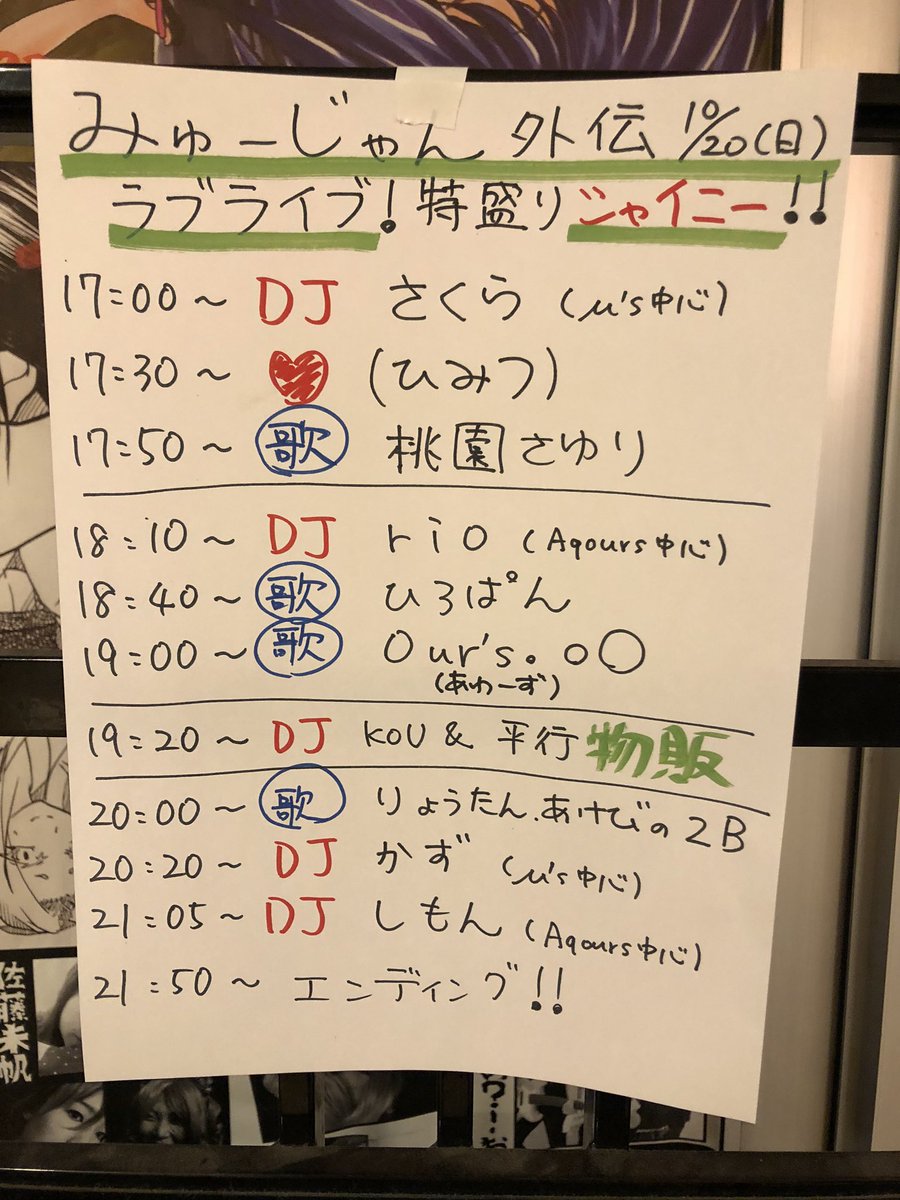 みゅーじゃん 外伝 10/20(日)
ラブライブ!特盛りシャイニー!!
17:00~ DJ さくら (μ's中心)
17:30~ ♥ (ひみつ)
17:50~ 歌 桃園さゆり
18:10~ DJ rio (Aqours中心)
18:40~ 歌 ひろぱん
19:00~ 歌 Our's.oO
(あわーず)
19:20~ DJ KOU & 平行 物販
20:00~ 歌 りょうたん.あけびの2B
20:20~ DJ かず (μ's中心)
21:05~ DJ しもん (Aqours中心)
21:50~ エンディング!!
佐藤未帆